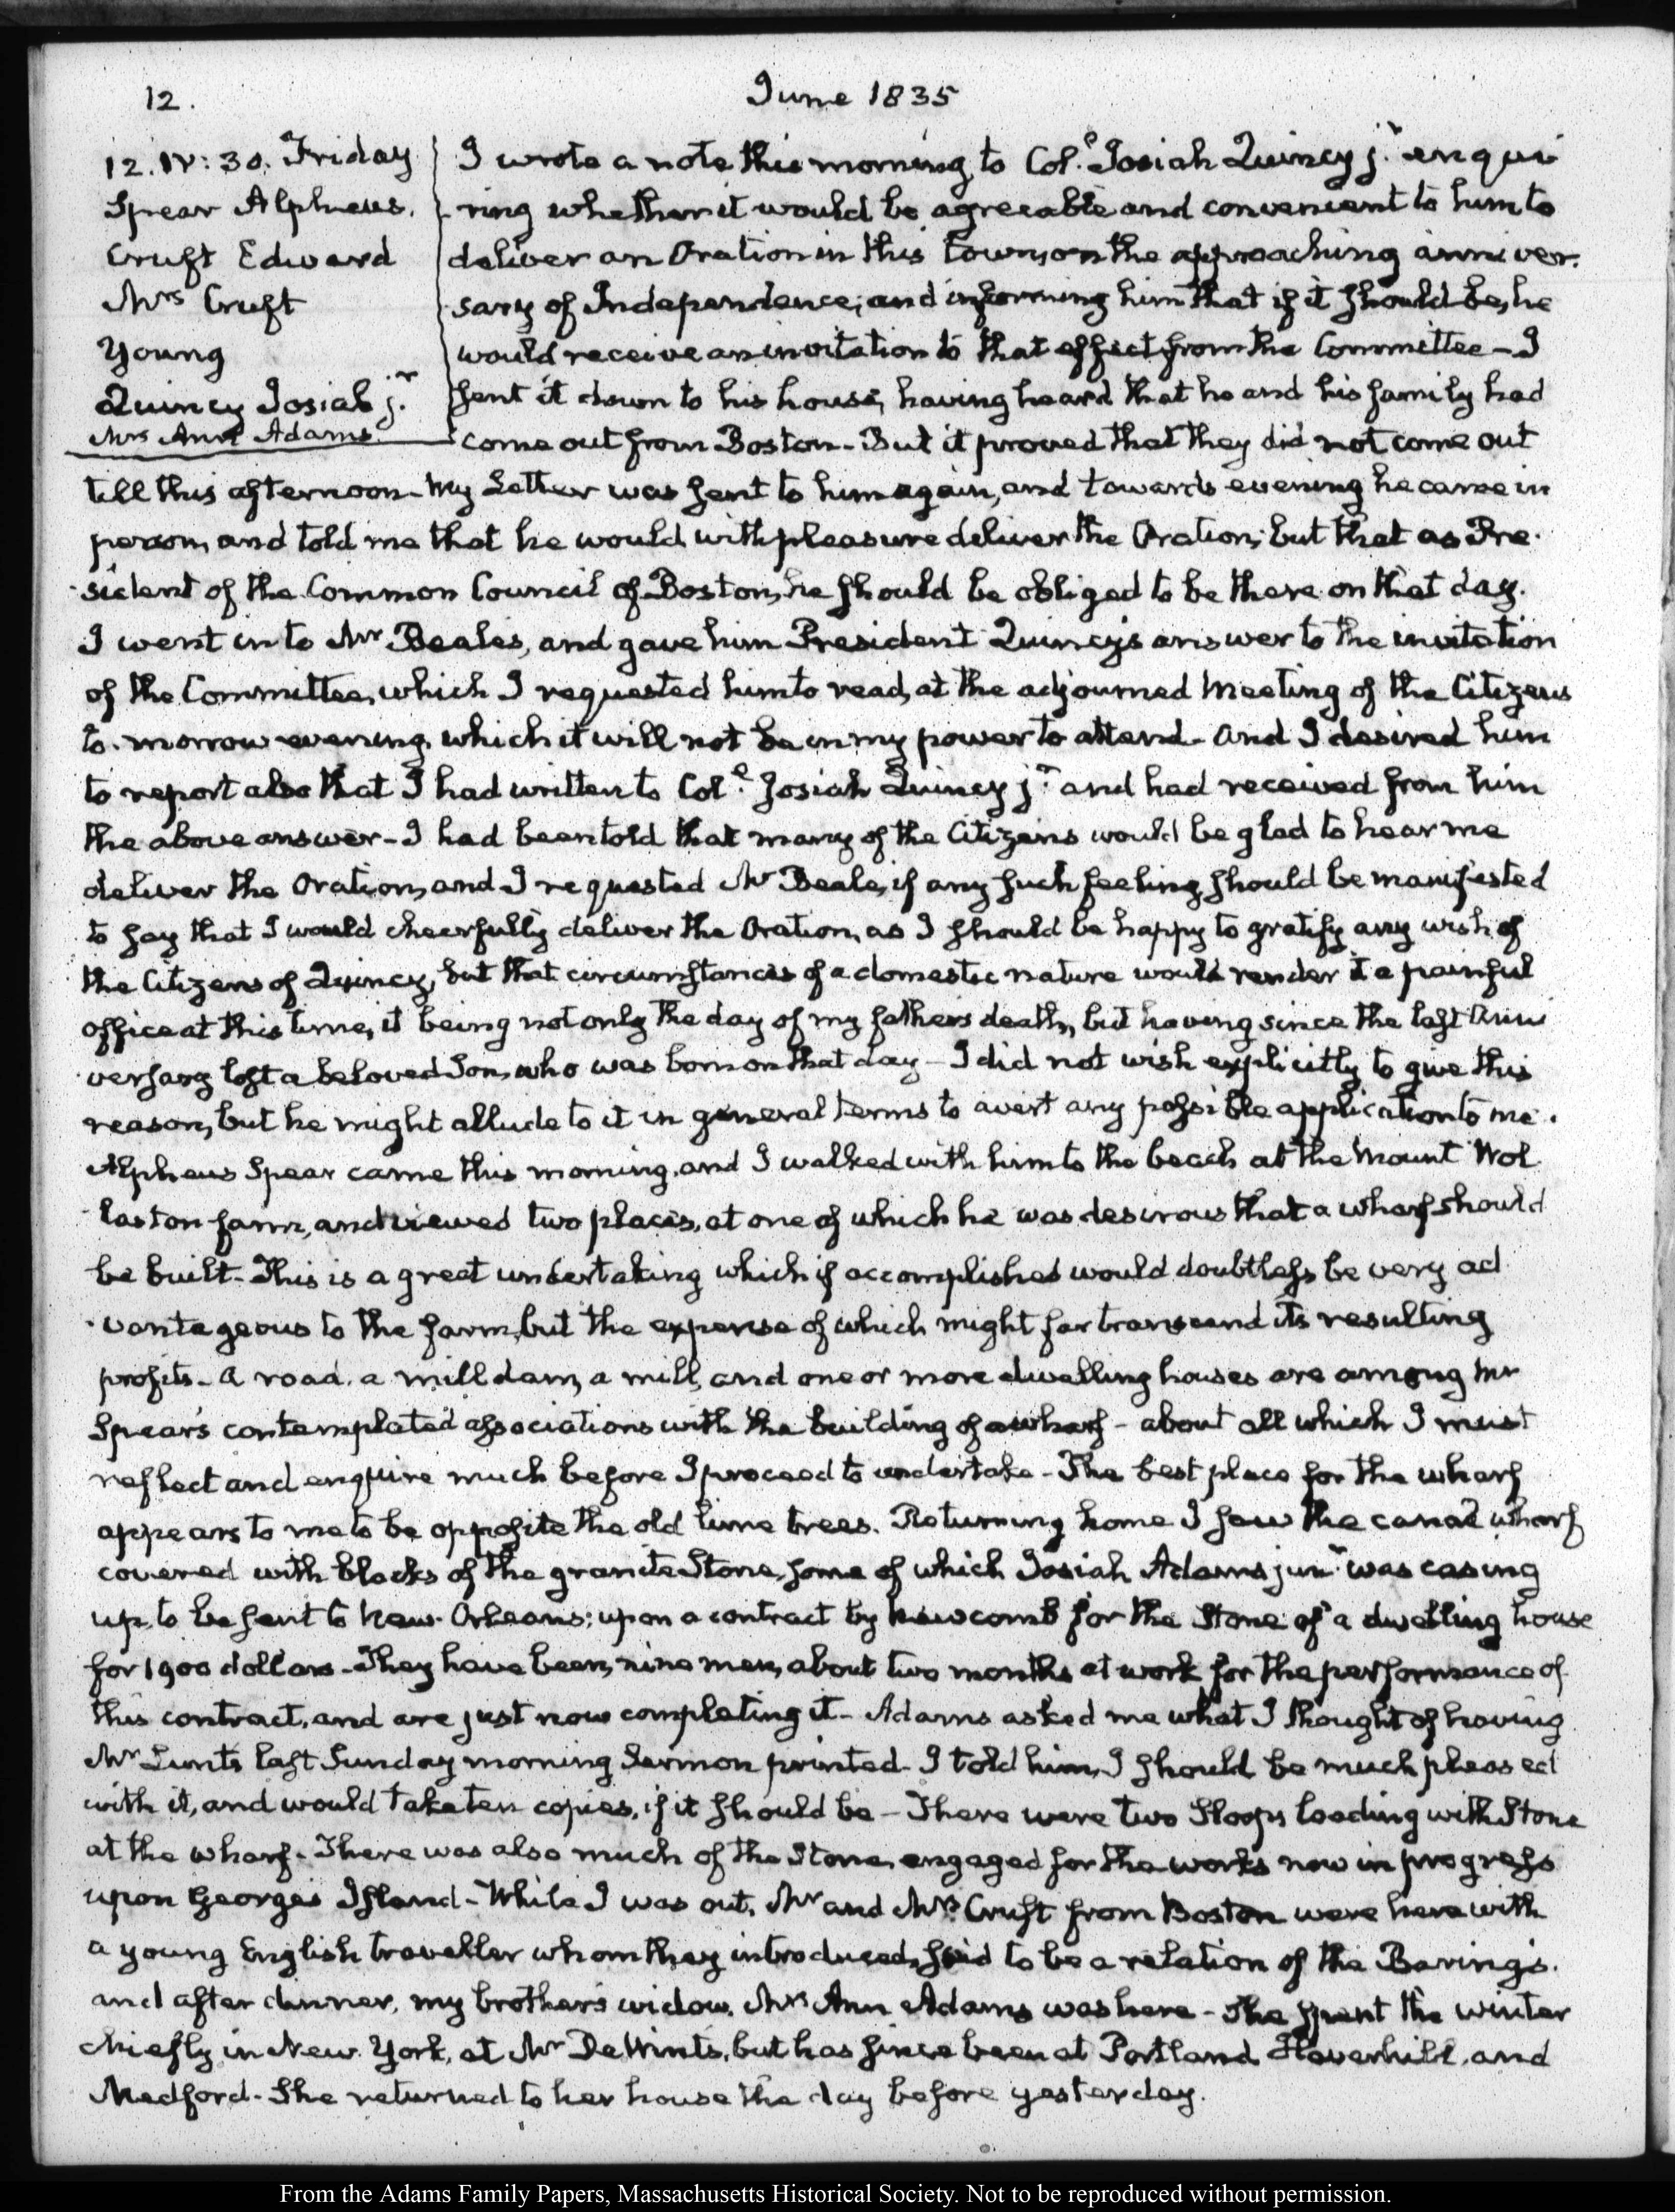 12.
June 1835
12. IV: 30. Friday
Spear Alpheus.
Cruft Edward
Mrs Cruft
Young
Quincy Josiah jr.
Mrs Ann Adams.
I wrote a note this morning to Coll. Josiah Quincy jr. enqui
ring whether it would be agreeable and convenient to him to
deliver an Oration in this town, on the approaching anniver-
sary of Independence; and informing him that if it should be, he
would receive an invitation to that effect from the Committee – I
sent it down to his house, having heard that he and his family had
come out from Boston – But it proved that they did not come out
till this afternoon – My Letter was sent to him again, and towards evening he came in
person, and told me that he would with pleasure deliver the Oration; but that as Pre-
sident of the Common Council of Boston, he should be obliged to be there on that day.
I went in to Mr Beale's, and gave him President Quincy's answer to the invitation
of the Committee, which I requested him to read, at the adjourned Meeting of the Citizens
to-morrow evening, which it will not be in my power to attend – And I desired him
to report also that I had written to Coll. Josiah Quincy jr. and had received from him
the above answer – I had been told that many of the Citizens would be glad to hear me
deliver the Oration, and I requested Mr Beale, if any such feeling should be manifested
to say that I would cheerfully deliver the Oration, as I should be happy to gratify any wish of
the Citizens of Quincy, but that circumstances of a domestic nature would render it a painful
office at this time, it being not only the day of my father's death, but having since the last Anni
versary lost a beloved Son, who was born on that day – I did not wish explicitly to give this
reason, but he might allude to it in general terms to avert any possible application to me.
Alpheus Spear came this morning, and I walked with him to the beach at the Mount Wol
laston farm, and viewed two places, at one of which he was desirous that a wharf should
be built – This is a great undertaking which if accomplished would doubtless be very ad
vantageous to the farm, but the expense of which might far transcend its resulting
profits – A road, a mill dam, a mill, and one or more dwelling houses are among Mr
Spear's contemplated associations with the building of a wharf – about all which I must
reflect and enquire much before I proceed to undertake – The best place for the wharf
appears to me to be opposite the old lime trees. Returning home I saw the canal wharf
covered with blocks of the granite Stone, some of which Josiah Adams junr. was casing
up, to be sent to New-Orleans; upon a contract by Newcomb for the Stone of a dwelling house
for 1900 dollars – They have been, nine men, about two months at work for the performance of
this contract, and are just now completing it – Adams asked me what I thought of having
Mr Lunt's last Sunday morning Sermon printed – I told him, I should be much pleased
with it, and would take ten copies, if it should be – There were two Sloops loading with Stone
at the wharf – There was also much of the Stone, engaged for the works now in progress
upon Georges Island – While I was out, Mr and Mrs. Cruft from Boston were here with
a young English traveller whom they introduced, said to be a relation of the Barings.
and after dinner, my brother's widow, Mrs Ann Adams was here – She spent the winter
chiefly in New York, at Mr DeWint's, but has since been at Portland Haverhill, and
Medford – She returned to her house the day before yesterday.
From the Adams Family Papers, Massachusetts Historical Society. Not to be reproduced without permission.